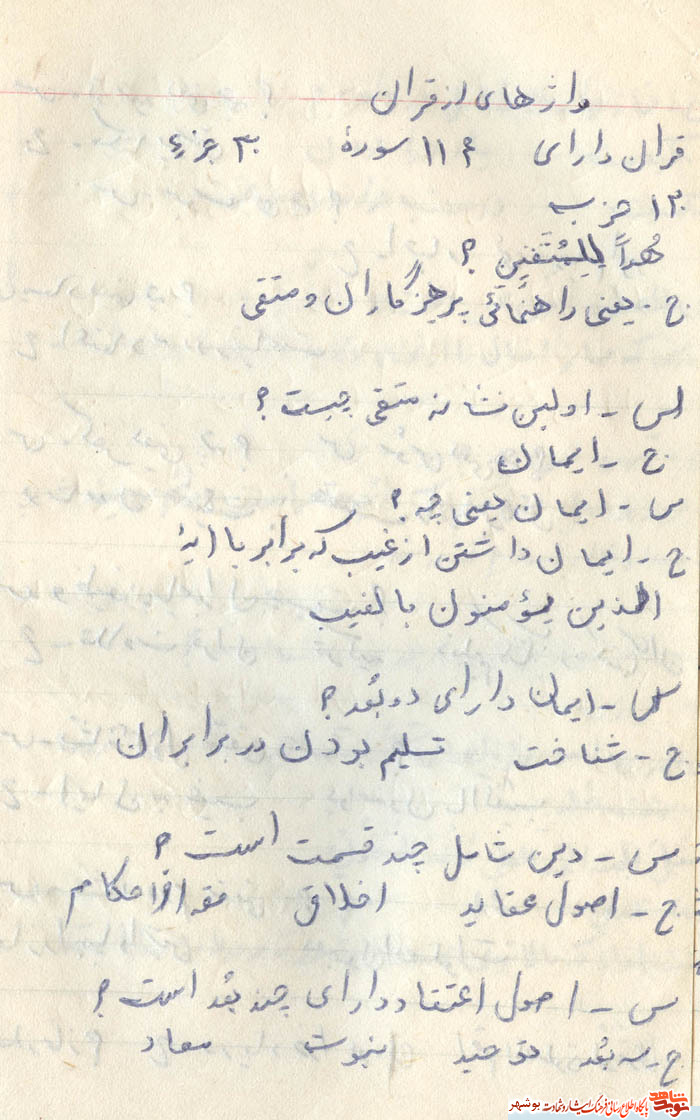 واژهای از قران
قران دارای ۱۱۴ سورهٔ ۳۰ جزء
۱۲۰ حزب
هُداً لِلمُتَقینِ ؟
ج - یعنی راهنمائی پرهیزگاران و متقی
س - اولین نشانه متقی چیست ؟
ج - ایمان
س - ایمان یعنی چه ؟
ج - ایمان داشتن از غیب که برابر با ایهٔ
الذین یؤمنون بالغیب
س - ایمان دارای دو بُعد ؟
ج - شناخت تسلیم بودن در برابر ان
س - دین شامل چند قسمت است ؟
ج - اصول عقاید اخلاق احکام
س - اصول اعتقاد دارای چند بُعد است ؟
ج - سه بُعد توحید نبوت معاد
نوید شاهد
پایگاه اطلاع رسانی فرهنگ ایثار و شهادت بوشهر